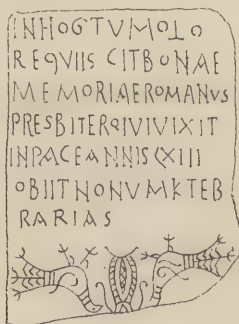 INHOGTVMOLO
REQVIIS CITBONAE
MEMORIAEROMANVS
PRESBITERQIVIVIXIT
INPACEANNISLXIII
OBIITNONVMKTEB
RARIAS